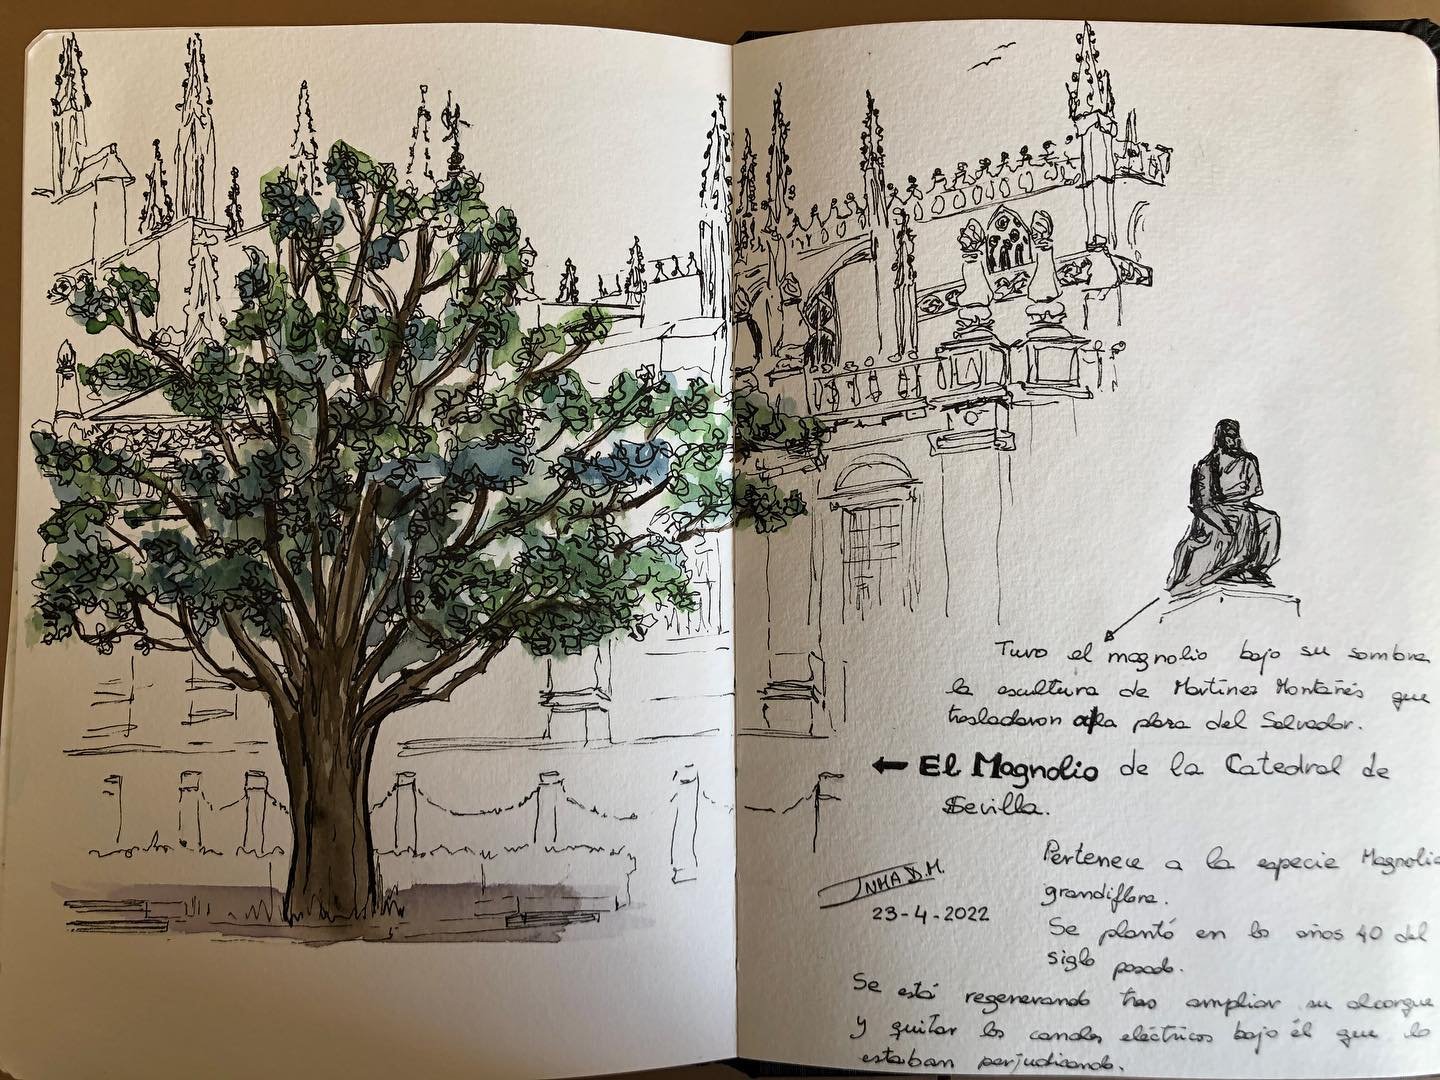 Tuvo el magnolio bajo su sombra
la escultura de Martínez Montañés que
trasladaron a la plaza del Salvador.
← El Magnolio de la Catedral de
Sevilla.
Pertenece a la especie Magnolia
grandiflora.
INMA D.M.
23-4-2022
Se plantó en lo años 40 del
siglo pasado.
Se está regenerando tras ampliar su alcorque
y quitar los canales eléctricos bajo él que lo
estaban perjudicando.